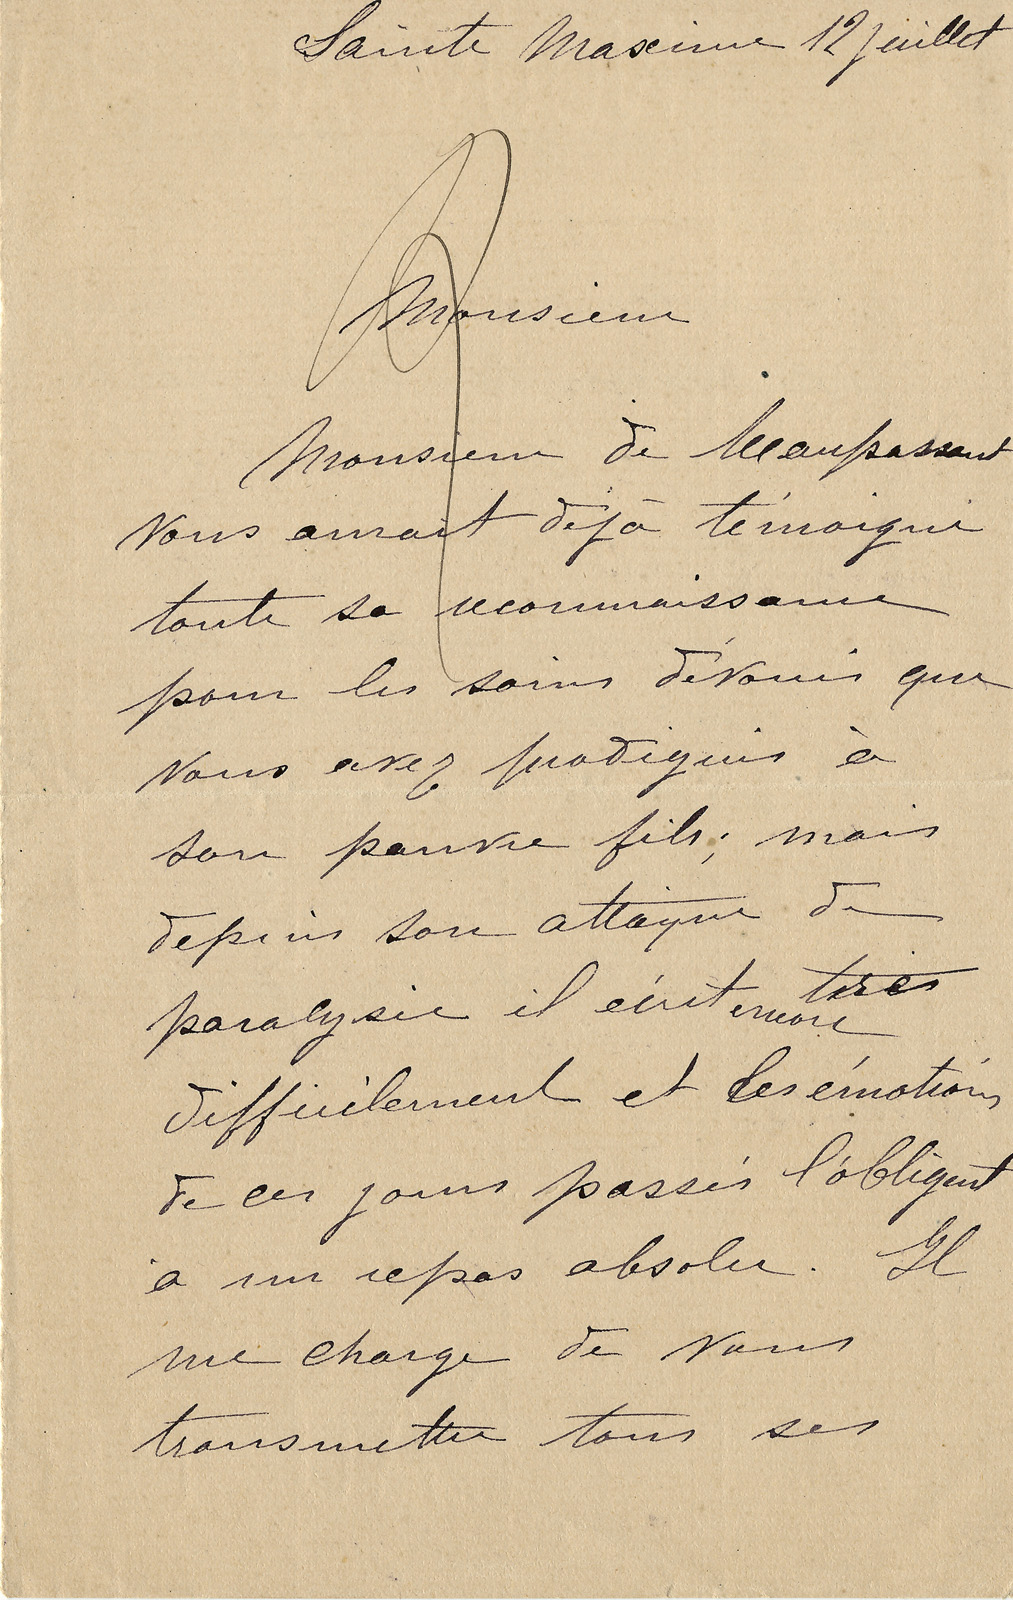 Sainte Maxime 12 juillet
Monsieur
Monsieur de Maupassant
vous aurait déjà témoigné
toute sa reconnaissance
pour les soins dévoués que
vous avez prodigués à
son pauvre fils; mais
depuis son attaque de
paralysie il écrit encore très
difficilement et les émotions
de ces jours passés l'obligent
à un repos absolu. Il
me charge de vous
transmettre tous ses